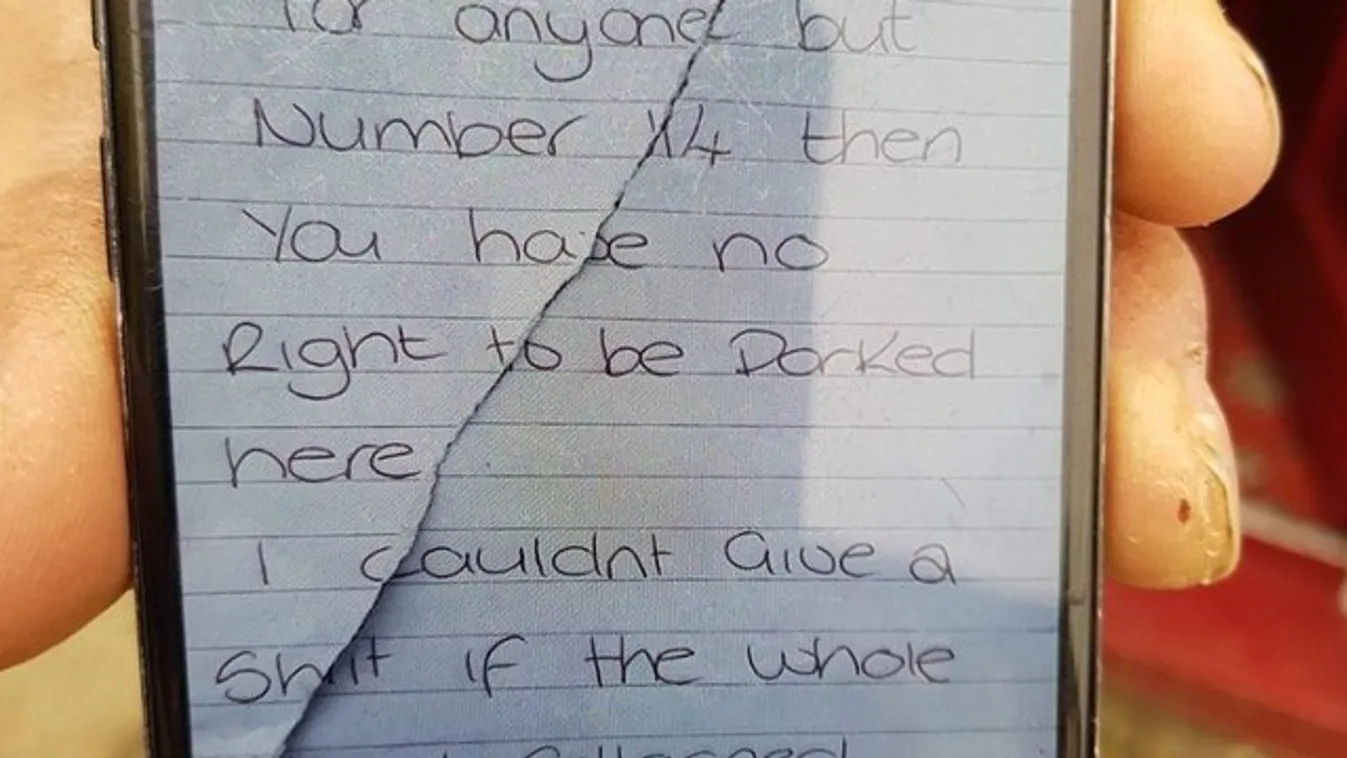 for anyone but
Number 14 then
You have no
Right to be Parked
here
I couldnt Give a
Shit if the whole